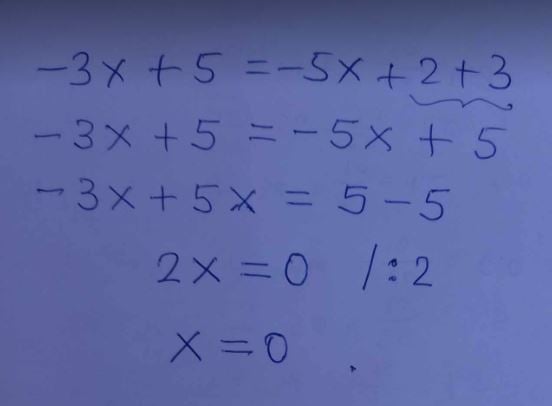 -3x + 5 = -5x + 2 + 3
-3x + 5 = -5x + 5
-3x + 5x = 5 - 5
2x = 0 /:2
x = 0